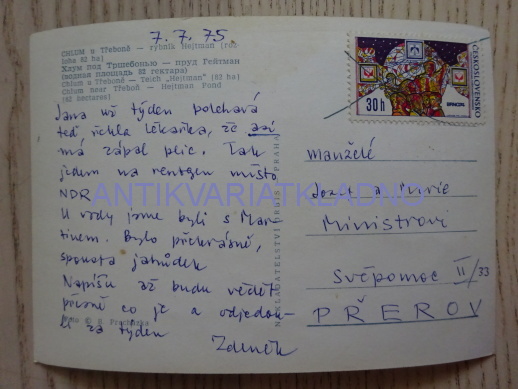 7.7.75
CHLUM u Třeboně — rybník Hejtman (roz
loha 82 ha)
Хлум под Тршебонью — пруд Гейтман
(водная площадь 82 гектара)
Chlum u Třeboně — Teich „Hejtman" (82 ha)
Chlum near Třeboň — Hejtman Pond
(82 hectares)
30h
ČESKOSLOVENSKO
Jana už týden polehává
teď řekla lékařka, že asi
má zápal plic. Tak
jedem na rentgen místo
NDR
U vody jsme byli s Mar-
tinem. Bylo překrásně,
spousta jahůdek
Napíšu až budu vědět
přesně co je a odjedou-
li za týden
Zdeněk
Foto © Procházka
NAKLADATELSTVÍ ORBIS PRAHA
Manželé
a Marie
Ministrovi
Svépomoc II/33
PŘEROV
ANTIKVARIATKLADNO